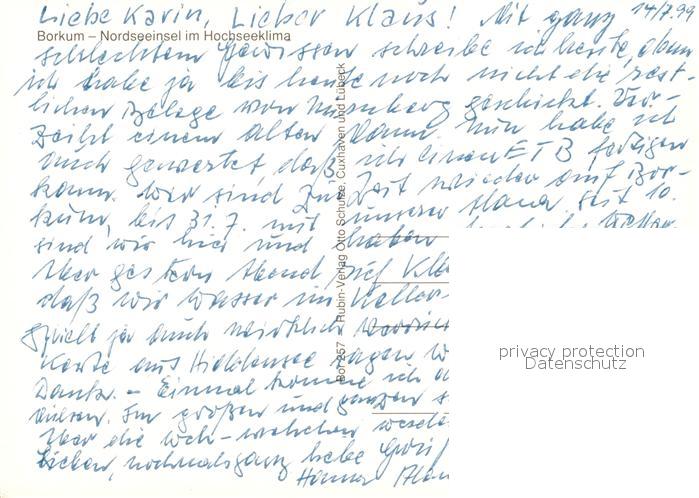 14/7.99
Liebe Karin, Lieber Klaus! Mit ganz
Borkum – Nordseeinsel im Hochseeklima
schlechtem Gewissen schreibe ich heute, denn
ich habe ja bis heute noch nicht die rest-
lichen Belege von Nürnberg geschickt. Ver-
zeiht einem alten Mann. Nun habe ich
auch gewartet daß ich einen ETB fertigen
kann. Wir sind zur Zeit wieder auf Bor-
kum, bis 31.7. mit unserer seit 10.
sind wir hier und haben
Aber gestern Abend rief
daß wir Wasser im Keller
spielt ja auch wirklich
Karte aus Hiddensee sagen
Dank. – Einmal komme ich
Im großen und ganzen
Über die
nochmals ganz liebe
Bor 257 Rubin-Verlag Otto Schulze, Cuxhaven und Lübeck
privacy protection
Datenschutz